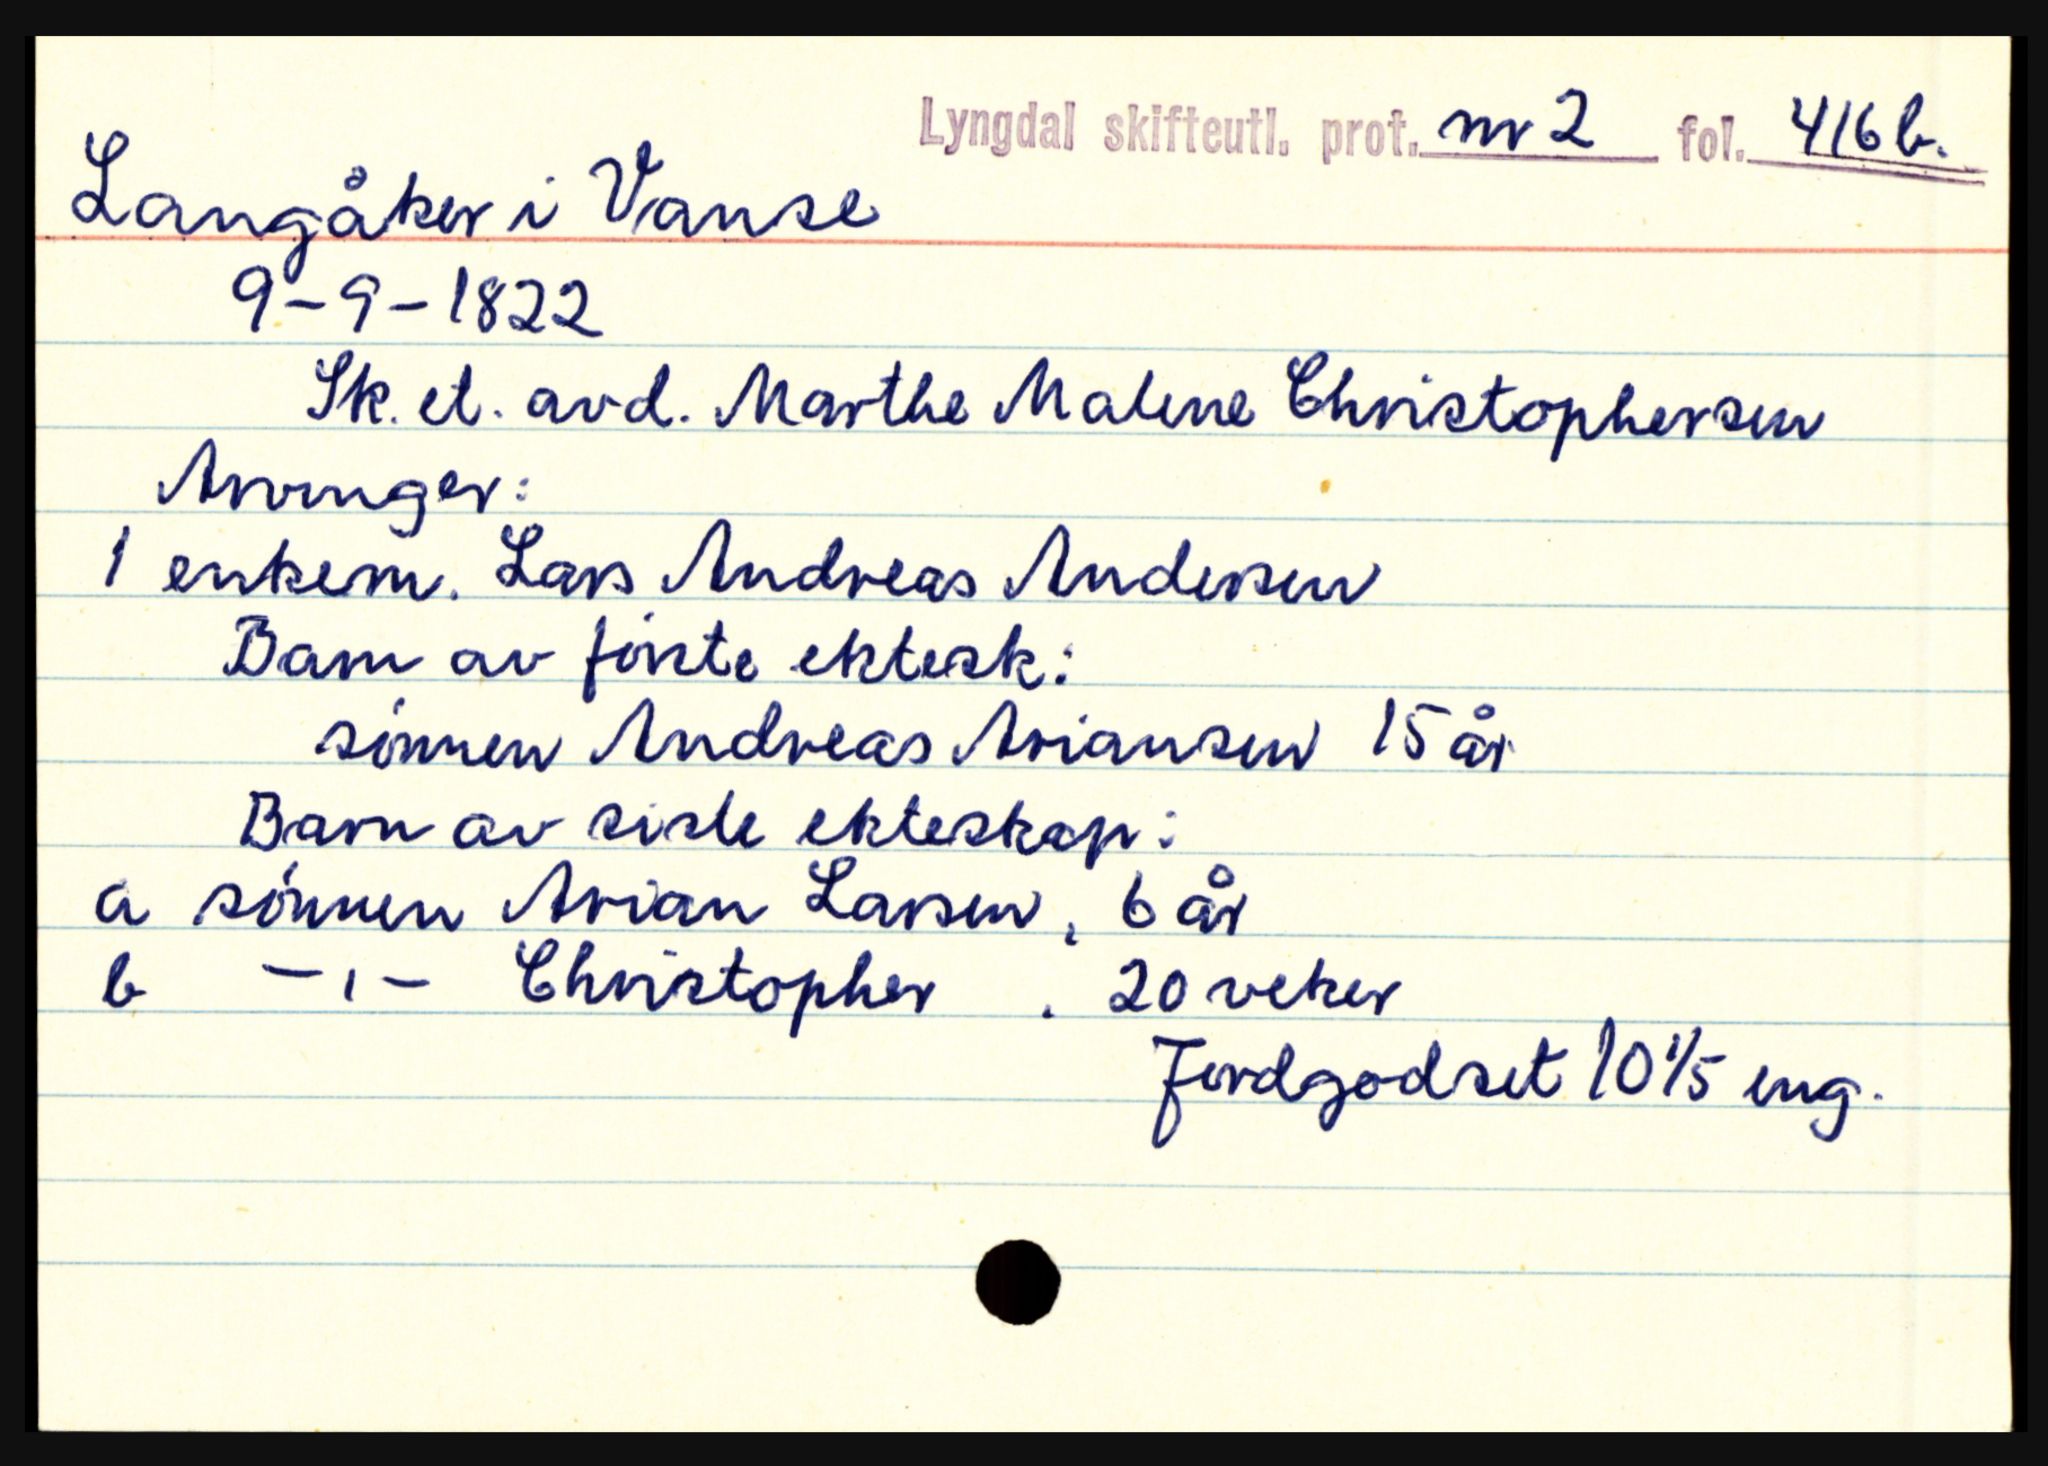 Lyngdal skifteutl. prot. nr 2 fol. 416 b.
Langåker i Vanse
9-9-1822
Sk. et. avd. Marthe Malene Christophersen
Arvinger:
1 enkem. Lars Andreas Andersen
Barn av første ektesk:
sønnen Andreas Ariansen 15 år
Barn av siste ekteskap:
a sønnen Arian Larsen, 6 år
b -ı- Christopher . 20 veker
Jordgodset 10 1/5 eng.